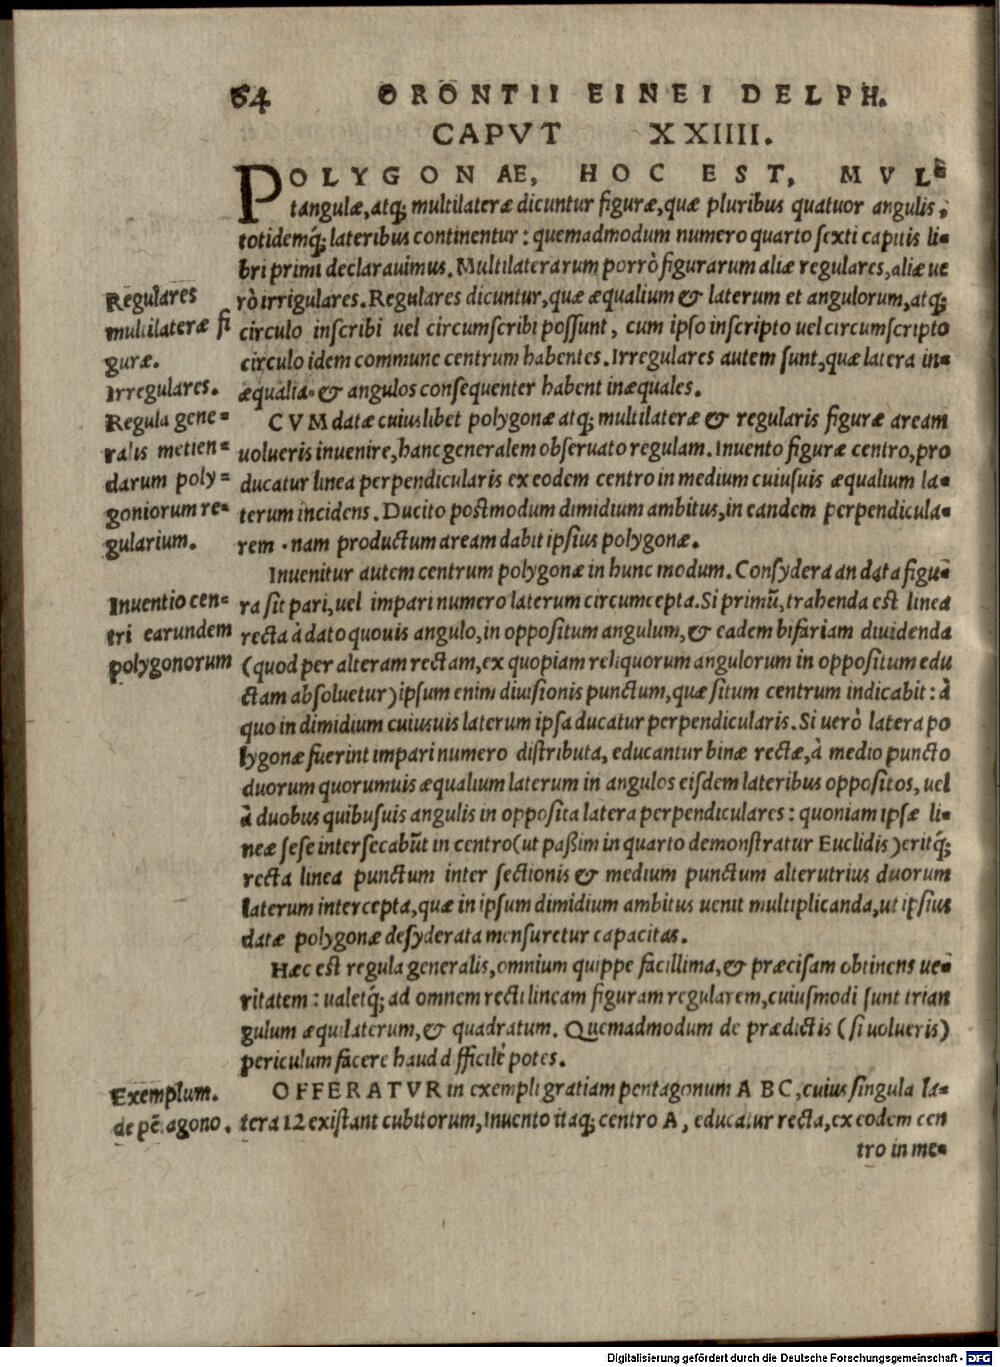 64 ORONTII EINEI DELPH.
CAPVT XXIIII.
POLYGONAE, HOC EST, MVL-
tangulæ, atq; multilateræ dicuntur figuræ, quæ pluribus quatuor angulis,
totidemq́; lateribus continentur: quemadmodum numero quarto sexti capitis li-
bri primi declarauimus. Multilaterarum porrò figurarum aliæ regulares, aliæ ue
rò irrigulares. Regulares dicuntur, quæ æqualium & laterum et angulorum, atq;
circulo inscribi uel circumscribi possunt, cum ipso inscripto uel circumscripto
circulo idem commune centrum habentes. Irregulares autem sunt, quæ latera in-
æqualia. & angulos consequenter habent inæquales.
Regulares
multilateræ fi
guræ.
Irregulares.
CVM datæ cuiuslibet polygonæ atq; multilateræ & regularis figuræ aream
uolueris inuenire, hanc generalem obseruato regulam. Inuento figuræ centro, pro
ducatur linea perpendicularis ex eodem centro in medium cuiusuis æqualium la-
terum incidens. Ducito postmodum dimidium ambitus, in eandem perpendicula-
rem . nam productum aream dabit ipsius polygonæ.
Regula gene-
ralis metien-
darum poly-
goniorum re-
gularium.
Inuenitur autem centrum polygonæ in hunc modum. Consydera an data figu-
ra sit pari, uel impari numero laterum circumcepta. Si primũ, trahenda est linea
recta à dato quouis angulo, in oppositum angulum, & eadem bifariam diuidenda
(quod per alteram rectam, ex quopiam reliquorum angulorum in oppositum edu
ctam absoluetur) ipsum enim diuisionis punctum, quæsitum centrum indicabit: à
quo in dimidium cuiusuis laterum ipsa ducatur perpendicularis. Si uerò latera po
lygonæ fuerint impari numero distributa, educantur binæ rectæ, à medio puncto
duorum quorumuis æqualium laterum in angulos eisdem lateribus oppositos, uel
à duobus quibusuis angulis in opposita latera perpendiculares: quoniam ipsæ li-
neæ sese intersecabũt in centro (ut paßim in quarto demonstratur Euclidis) eritq́;
recta linea punctum inter sectionis & medium punctum alterutrius duorum
laterum intercepta, quæ in ipsum dimidium ambitus uenit multiplicanda, ut ipsius
datæ polygonæ desyderata mensuretur capacitas.
Inuentio cen-
tri earundem
polygonorum
Hæc est regula generalis, omnium quippe facillima, & præcisam obtinens ue-
ritatem: ualetq́; ad omnem rectilineam figuram regularem, cuiusmodi sunt trian
gulum æquilaterum, & quadratum. Quemadmodum de prædictis (si uolueris)
periculum facere haud d fficilè potes.
OFFERATVR in exempli gratiam pentagonum A BC, cuius singula la-
tera 12 existant cubitorum, Inuento itaq; centro A, educatur recta, ex eodem cen
tro in me-
Exemplum.
de pẽtagono.
Digitalisierung gefördert durch die Deutsche Forschungsgemeinschaft - DFG